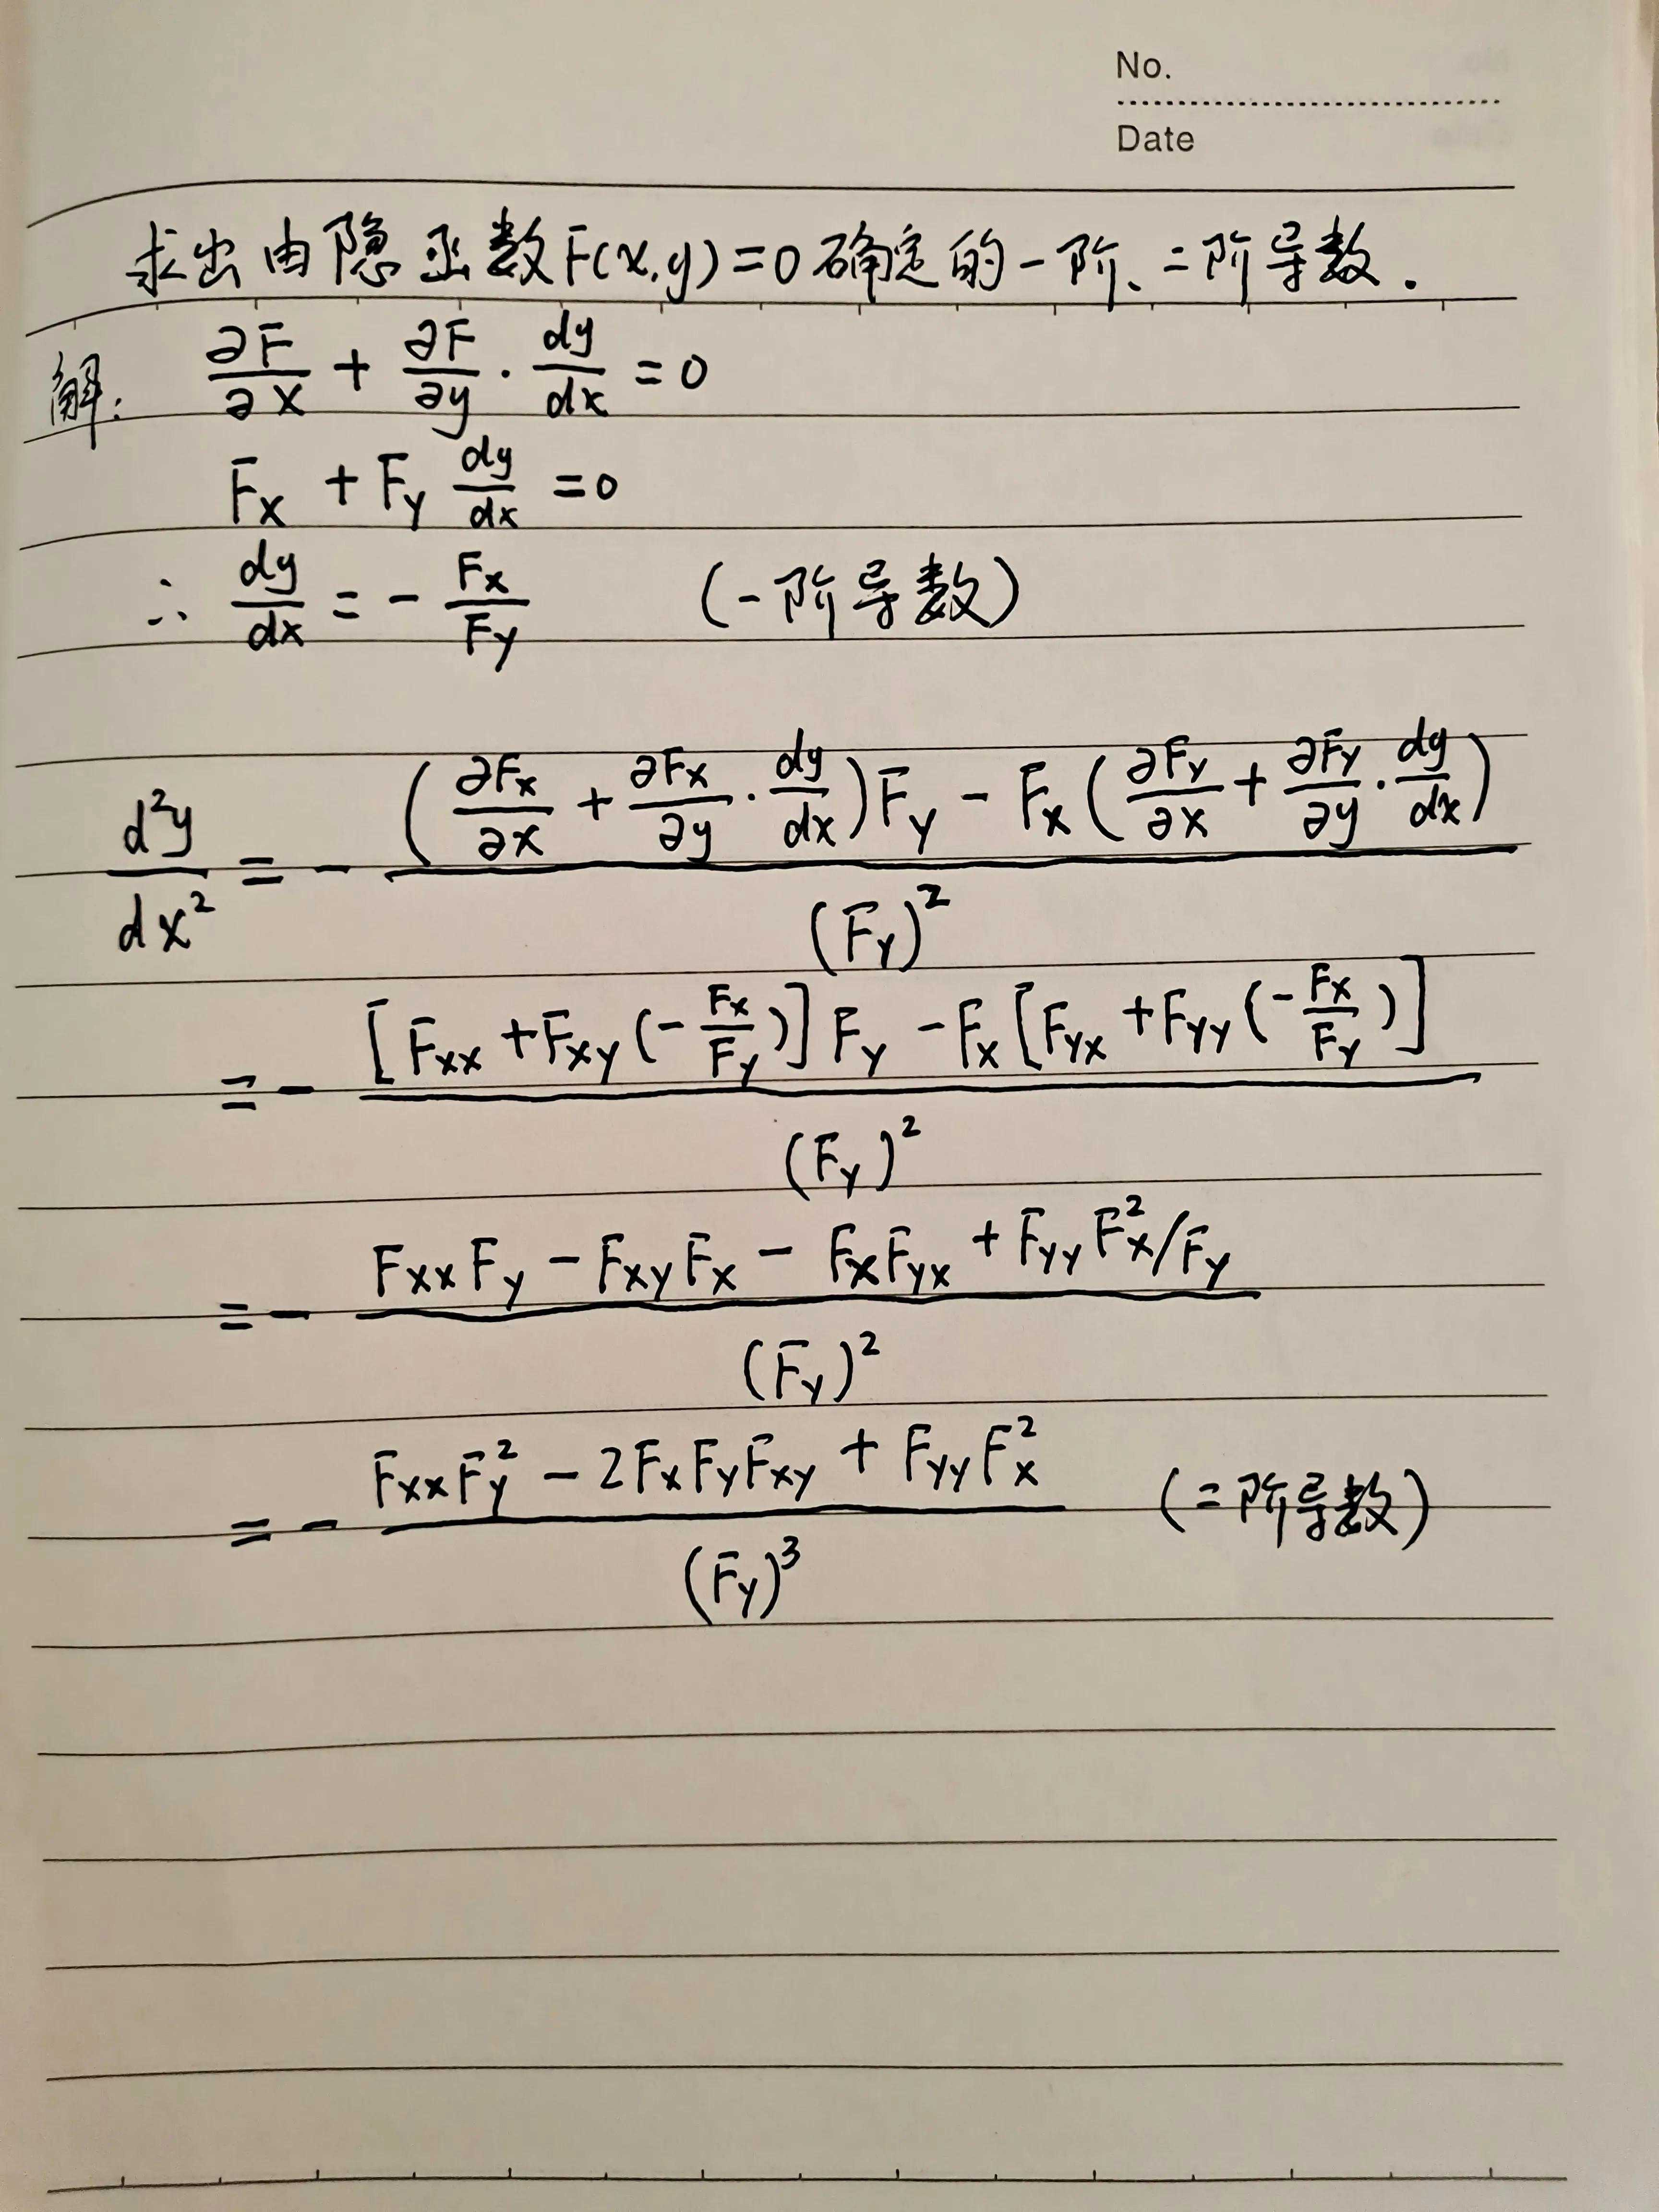 No.
Date
求出由隐函数F(x,y)=0确定的一阶、二阶导数.
解: ∂F/∂x + ∂F/∂y · dy/dx = 0
Fx + Fy dy/dx = 0
∴ dy/dx = - Fx/Fy (一阶导数)
d²y/dx² = - [(∂Fx/∂x + ∂Fx/∂y · dy/dx)Fy - Fx(∂Fy/∂x + ∂Fy/∂y · dy/dx)]/(Fy)²
= - {[Fxx + Fxy(- Fx/Fy)]Fy - Fx[Fyx + Fyy(- Fx/Fy)]}/(Fy)²
= - (FxxFy - FxyFx - FxFyx + FyyFx²/Fy)/(Fy)²
= - (FxxFy² - 2FxFyFxy + FyyFx²)/(Fy)³ (二阶导数)